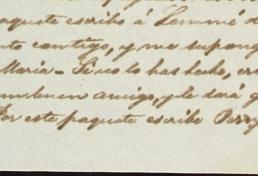 paquete escribo á Lemme d
to contigo, y me supong
Maria - Si no lo has hecho, er
un buen amigo, y le dará g
Por este paquete escribe Perry